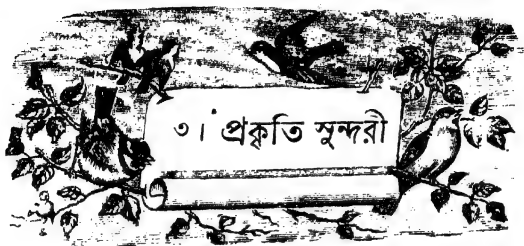 ৩। প্রকৃতি সুন্দরী